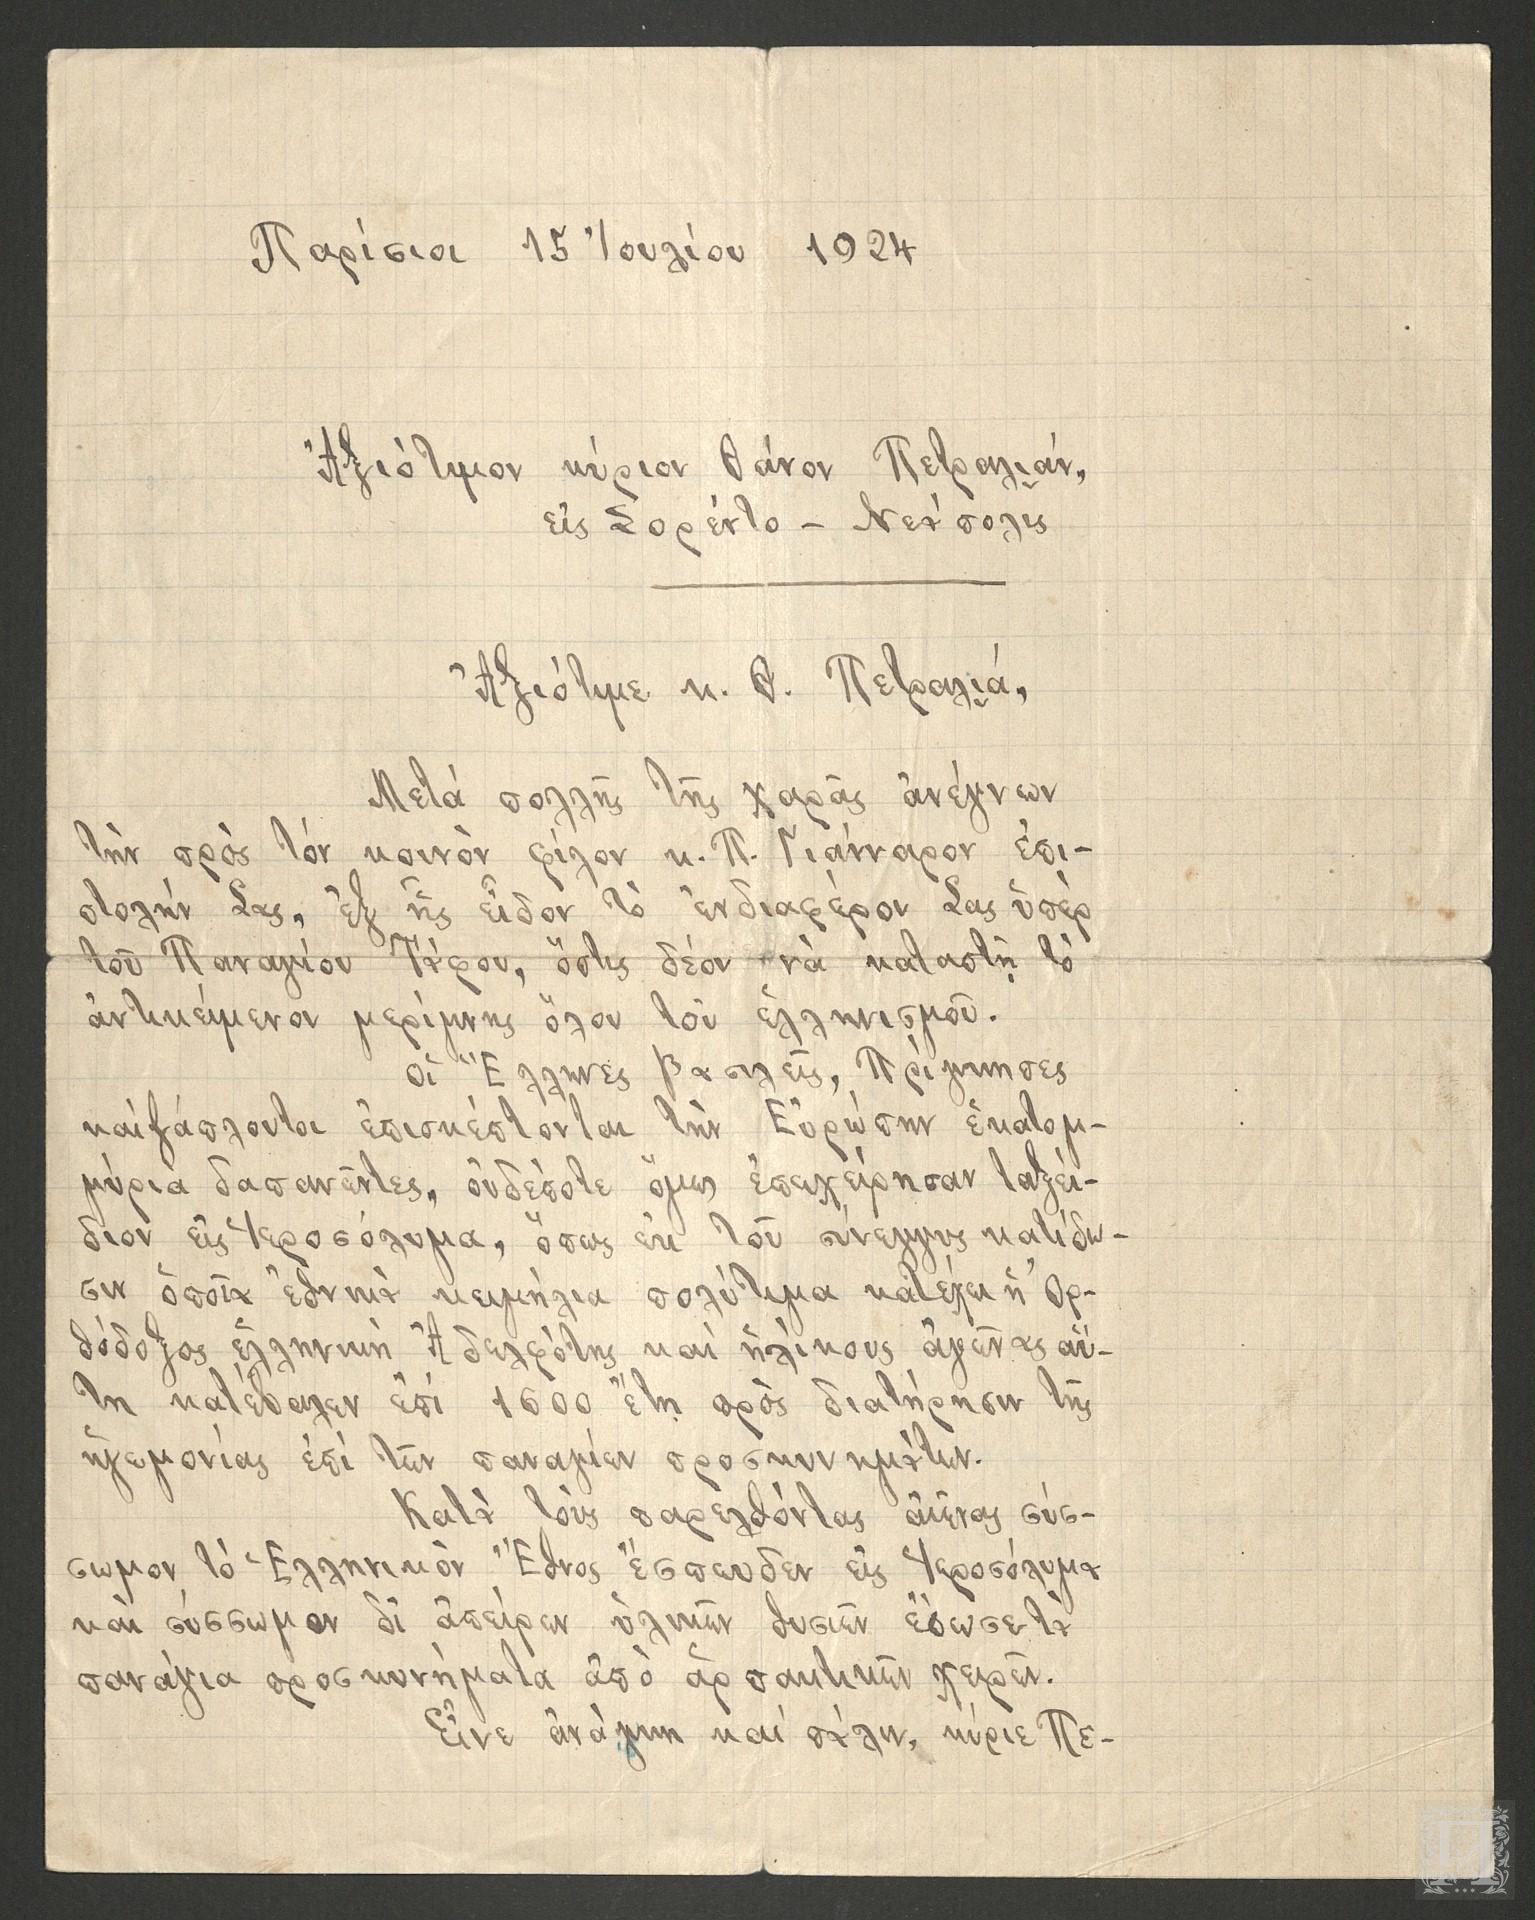 Παρίσιοι 15 Ἰουλίου 1924
Ἀξιότιμον κύριον Θάνον Πετραλιάν,
εἰς Σορέντο – Νεάπολις
Ἀξιότιμε κ. Θ. Πετραλιά,
Μετά πολλῆς τῆς χαρᾶς ἀνέγνων
τὴν πρὸς τόν κοινὸν φίλον κ. Π. Γιάνναρον ἐπι-
στολήν Σας, ἐξ ἧς εἶδον τὸ ἐνδιαφέρον Σας ὑπέρ
τοῦ Παναγίου Τάφου, ὅστις δέον νὰ καταστῇ τὸ
ἀντικείμενον μερίμνης ὅλου τοῦ ἑλληνισμοῦ.
Οἱ Ἕλληνες βασιλεῖς, Πρίγκηπες
καί ζάπλουτοι ἐπισκέπτονται τὴν Εὐρώπην ἑκατομ-
μύρια δαπανῶντες, οὐδέποτε ὅμως ἐπεχείρησαν ταξεί-
διον εἰς Ἱεροσόλυμα, ὅπως ἐκ τοῦ σύνεγγυς κατίδω-
σιν ὁποῖα ἐθνικὰ κειμήλια πολύτιμα κατέχει ἡ Ὀρ-
θόδοξος ἑλληνική Ἀδελφότης καί ἡλίκους ἀγῶνας αὕ-
τη κατέβαλεν ἐπί 1600 ἔτη πρὸς διατήρησιν τῆς
ἡγεμονίας ἐπί τῶν παναγίων προσκυνημάτων.
Κατὰ τούς παρελθόντας αἰῶνας σύσ-
σωμον τὸ Ἑλληνικὸν Ἔθνος ἔσπευδεν εἰς Ἱεροσόλυμα
καὶ σύσσωμον δι' ἀπείρων ὑλικῶν θυσιῶν ἔσωσε τὰ
πανάγια προσκυνήματα ἀπὸ ἁρπακτικῶν χειρῶν.
Εἶνε ἀνάγκη καί πάλιν, κύριε Πε-